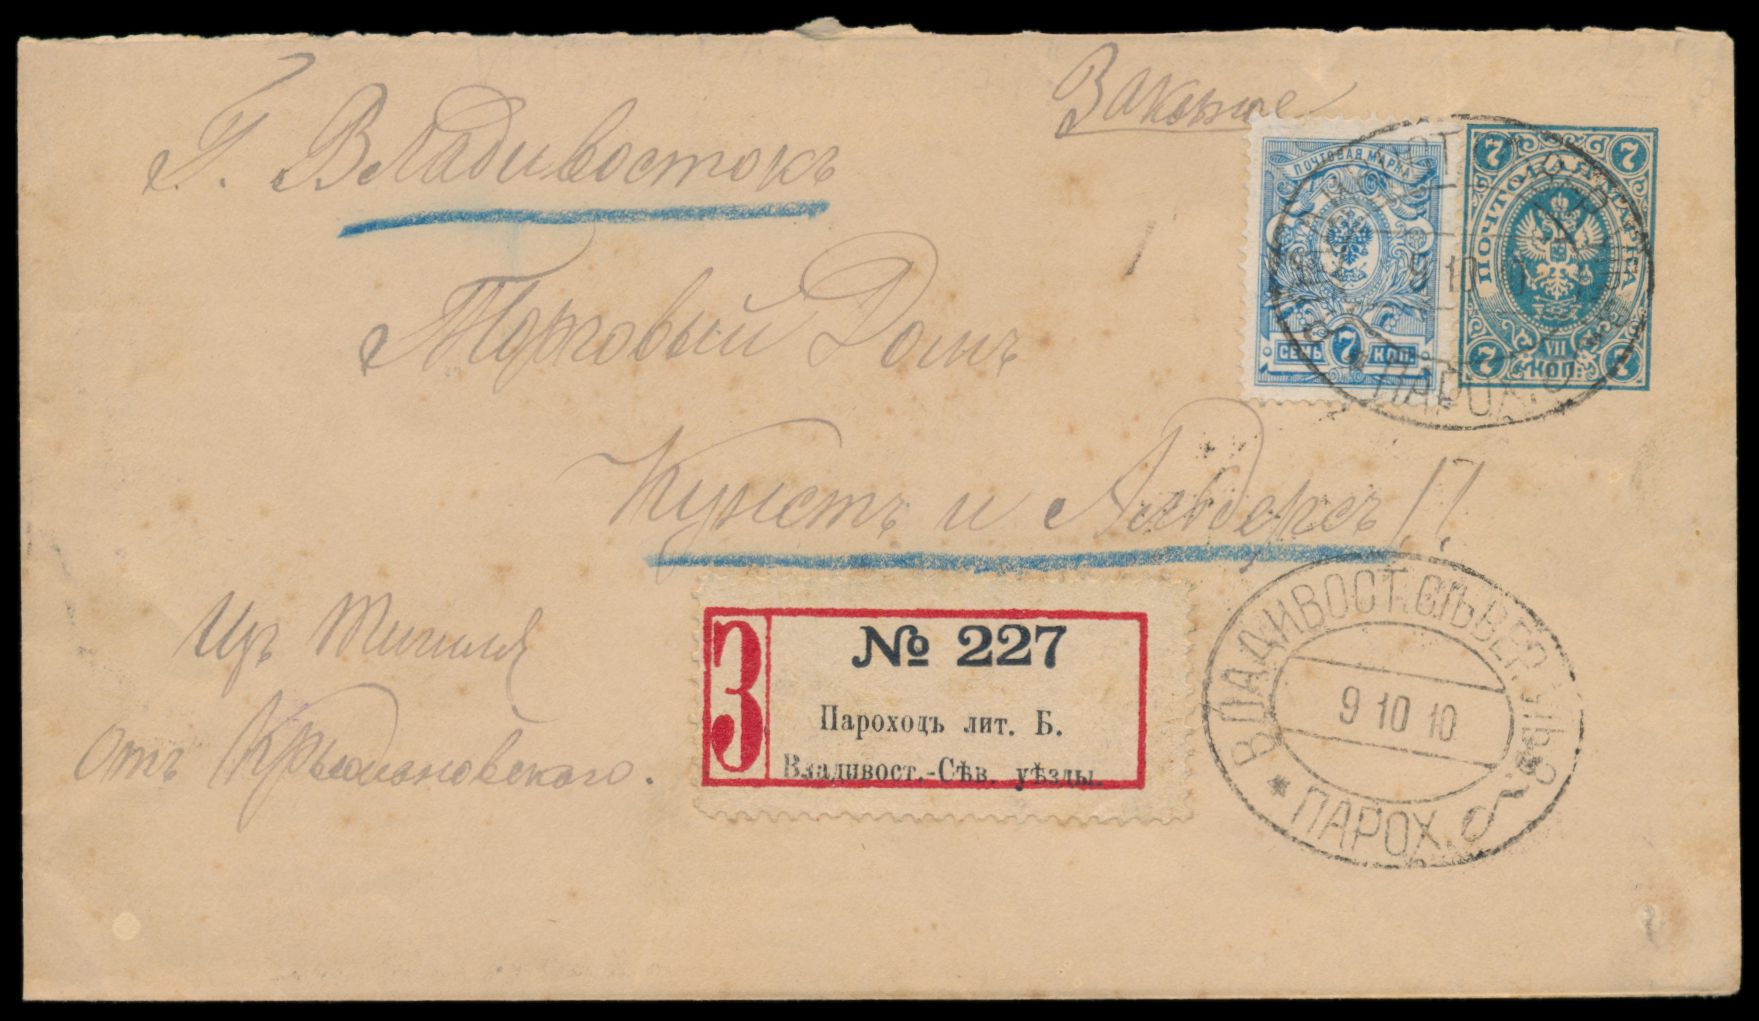 Заказное
Г. Владивостокъ
ПОЧТОВАЯ МАРКА
СЕМЬ 7 КОП.
7 7
ПОЧТОВАЯ МАРКА
VII
7 КОП. 7
9 10 10
ПАРОХ. б
Торговый Домъ
Кунстъ и Альберсъ
Изъ Тигиля
отъ Крыжановскаго.
З
№ 227
Пароходъ лит. Б.
Владивост.-Сѣв. уѣзды.
ВЛАДИВОСТ. СѢВЕР. УѢЗ.
9 10 10
* ПАРОХ. б